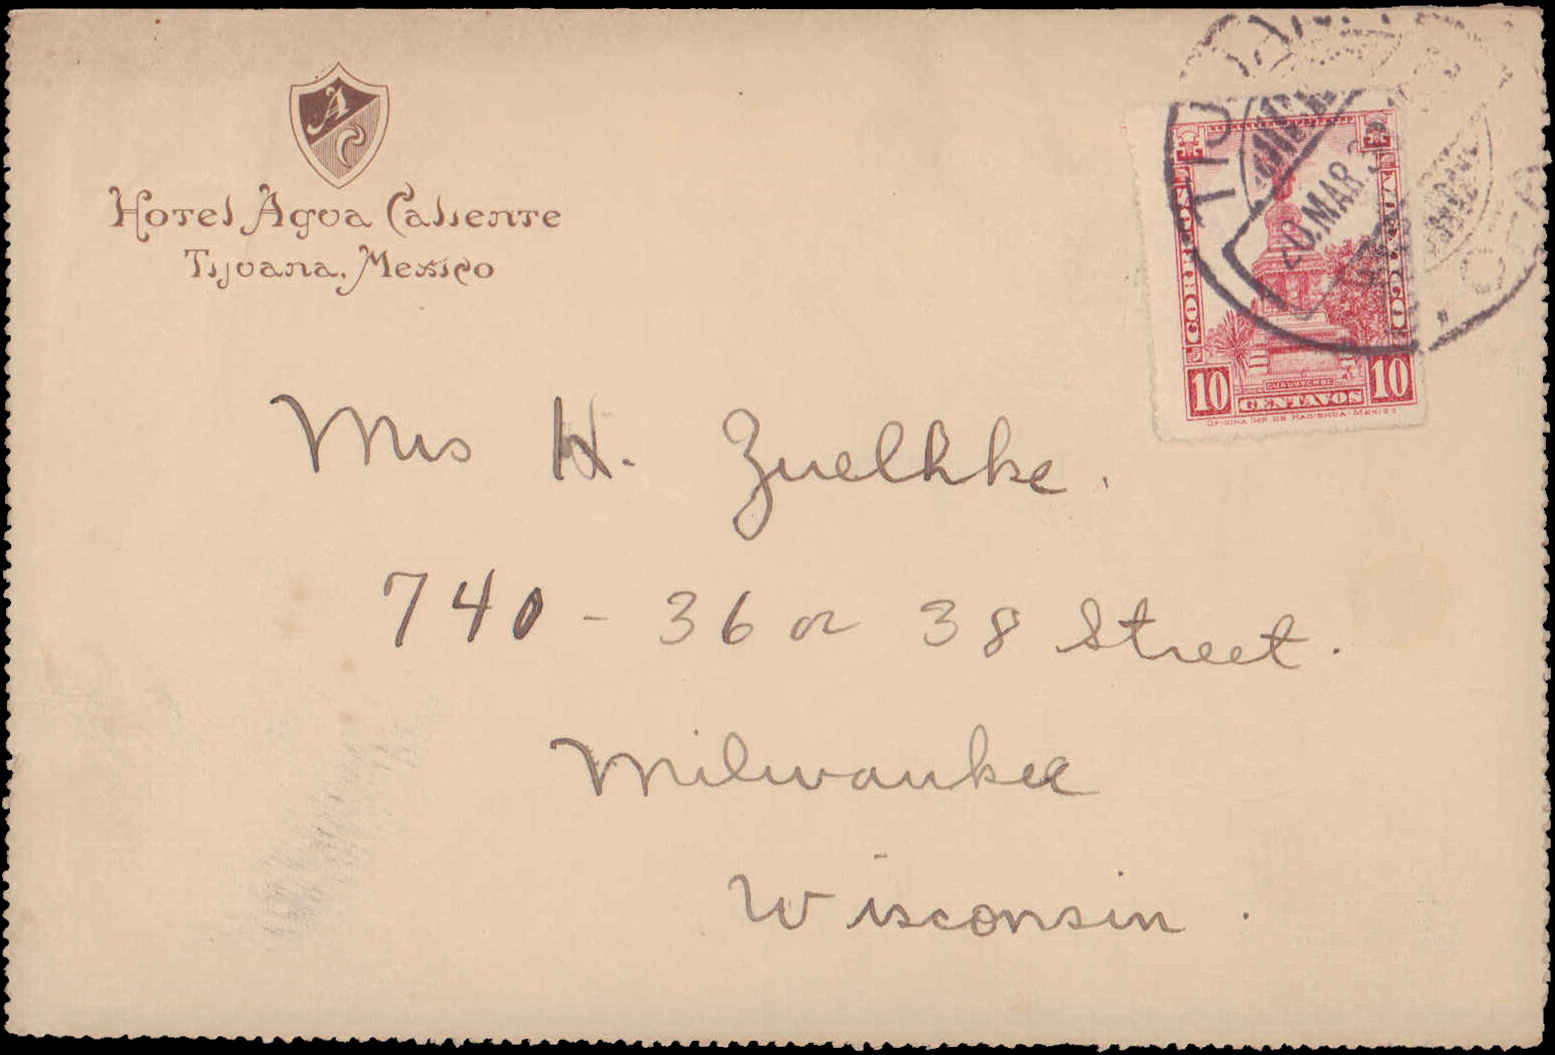 Hotel Agua Caliente
Tijuana, Mexico
A
TIJUANA
20.MAR.3
CORREOS MEXICO
10 CENTAVOS 10
OFICINA IMP. DE HACIENDA-MEXICO
Mrs H. Zuelhke.
740 - 36 or 38 Street.
Milwaukee
Wisconsin.